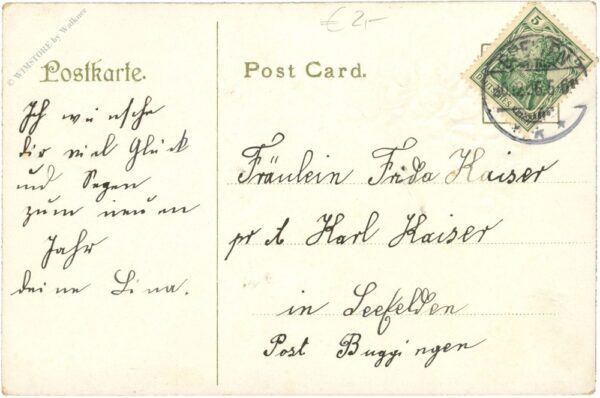 © WIMSTORE by Walkner
€ 2,-
Postkarte.
Post Card.
5
Ich wünsche
dir viel Glück
und Segen
zum neuen
Jahr
deine Lina.
Fräulein Frida Kaiser
Karl Kaiser
in Seefelden
Post Buggingen